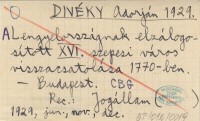 DIVÉKY Adorján 1929.
A Lengyelországnak elzálogo-
sított XVI. szepesi város
visszacsatolása 1770-ben.
– Budapest.
Rec.: Jogállam
1929, jún., nov., dec.